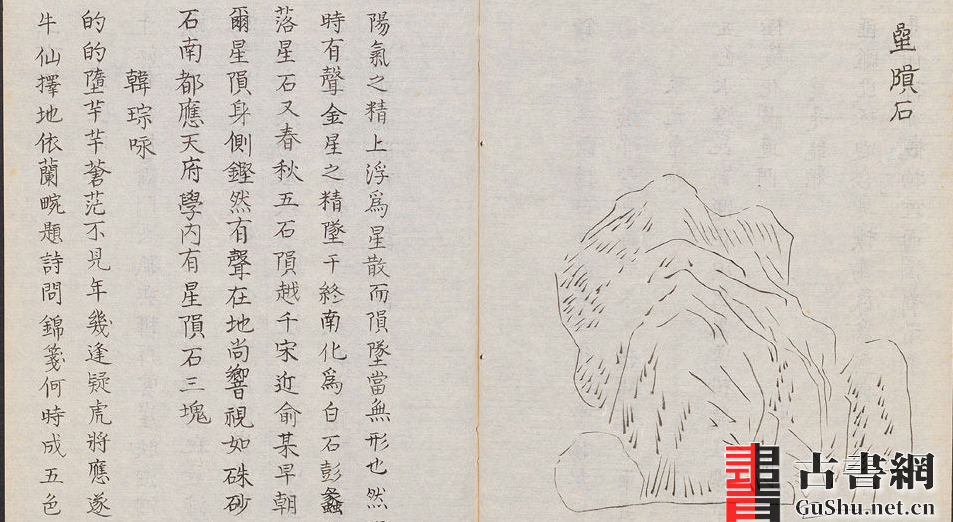 星隕石
陽氣之精上浮爲星散而隕墜當無形也然
時有聲金星之精墜于終南化爲白石彭蠡
落星石又春秋五石隕越于宋近俞某早朝
爾星隕身側鏗然有聲在地尚響視如硃砂
石南都應天府學內有星隕石三塊
韓琮咏
的的墮芊芊蒼茫不見年幾逢疑虎將應逐
牛仙擇地依蘭畹題詩問錦箋何時成五色
古書網
GuShu.net.cn